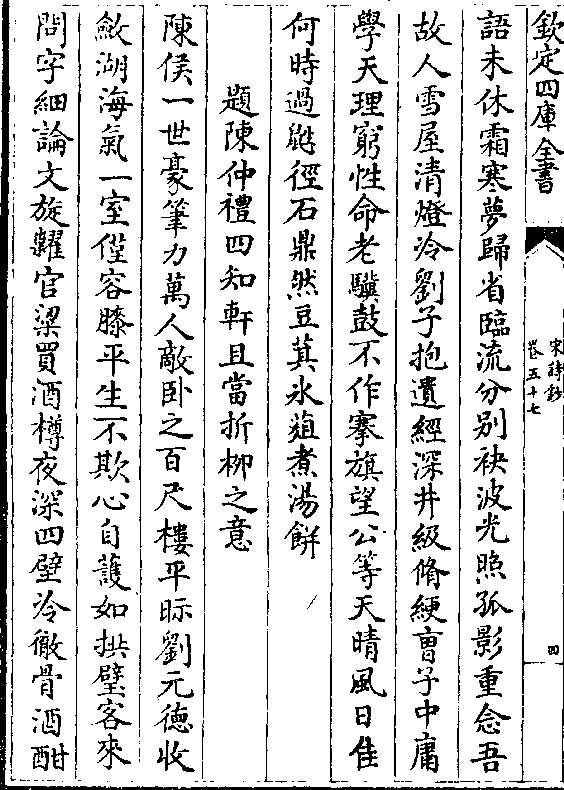 欽定四庫全書
宋詩鈔
卷五十七
四
語未休霜寒夢歸省臨流分别袂波光照孤影重念吾
故人雪屋清燈冷劉子抱遺經深井級脩綆曺子中庸
學天理窮性命老驥鼓不作搴旗望公等天晴風日佳
何時過毗徑石鼎然豆萁氷葅煮湯餅
題陳仲禮四知軒且當折栁之意
陳侯一世豪筆力萬人敵卧之百尺樓平睨劉元徳收
斂湖海氣一室僅容膝平生不欺心自䕶如拱璧客來
問字細論文旋糶官粱買酒樽夜深四壁冷徹骨酒酣